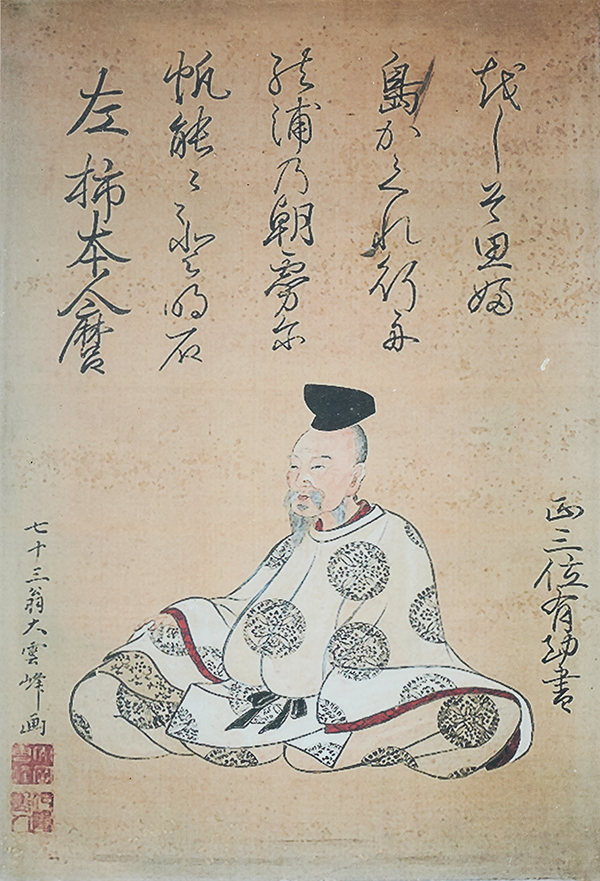 左 柿本人麿
帆能ゝゝ登明石
能浦乃朝霧尓
島かくれ行舟
越しそ思婦
正三位有功書
七十三翁大雲峰画